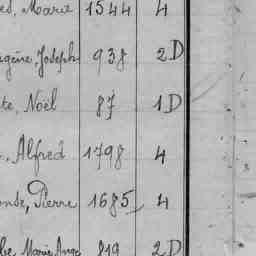 Marie 1544 4
Joseph 938 2D
Noël 87 1D
Alfred 1798 4
Pierre 1685 4
Marie Ange 819 2D